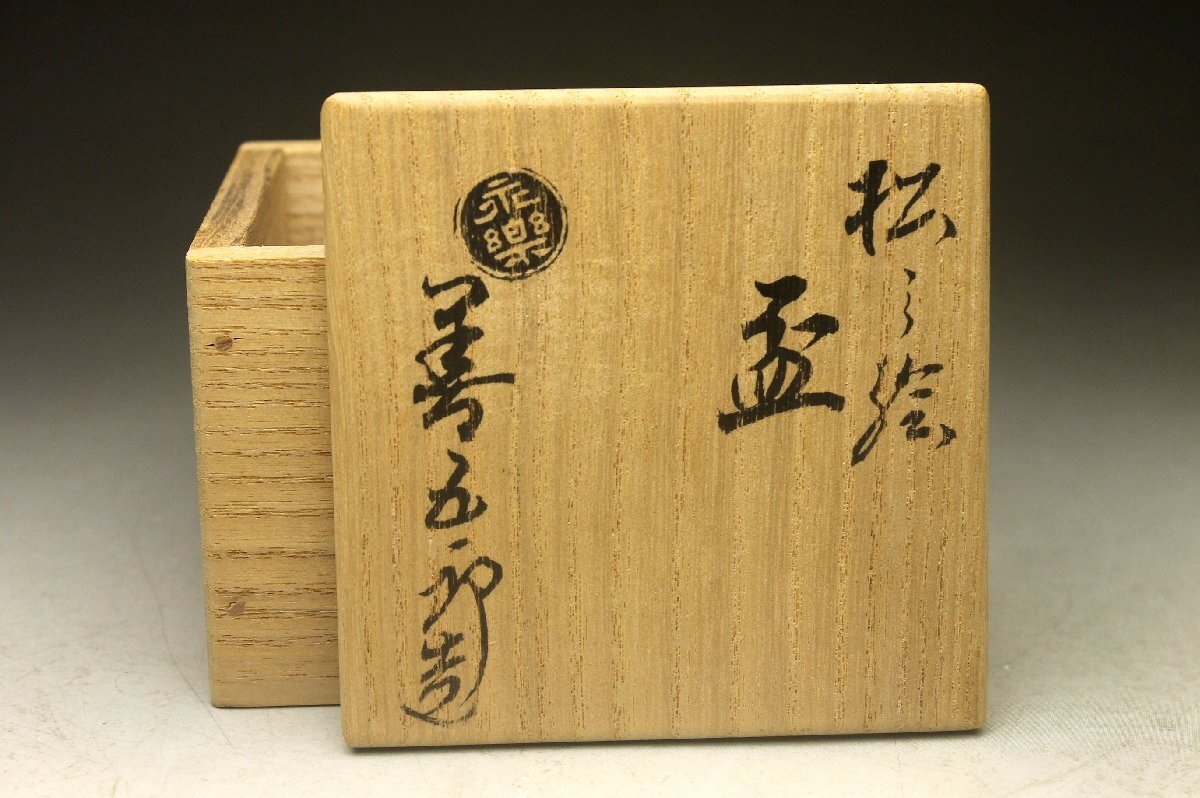 松之絵
盃
永樂
善五郎造